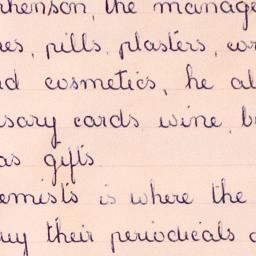 rhenson, the manage
es, pills, plasters, cor
nd cosmetics, he al
sary cards wine, b
as gifts
emists is where the
uy their periodicals